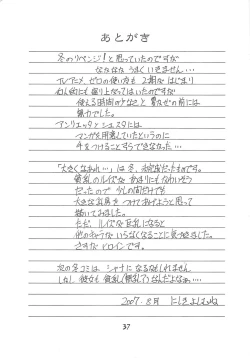 あとがき
冬のリベンジ！と思っていたのですが
なかなかうまくいきません…
TVアニメ、ゼロの使い魔も2期がはじまり
個人的にも盛り上がってはいたのですが
使える時間の少なさと暑さの前には
無力でした。
アンリエッタとシエスタには
マンガを用意していたというのに
手をつけることすらできなかった…
「大きくなあれ…」は冬、未完成だったものです。
貧乳のルイズがあまりにもかわいそう
だったので少しの間だけでも
大きな乳房をつけてあげようと思って
描いてみました。
ただ、ルイズが巨乳になると
他のキャラがいらなくなることに気づきました。
さすがヒロインです。
次の冬コミはシャナになるかもしれません
しかし彼女も貧乳(無乳?)なんだよなぁ…
2007.8月
37